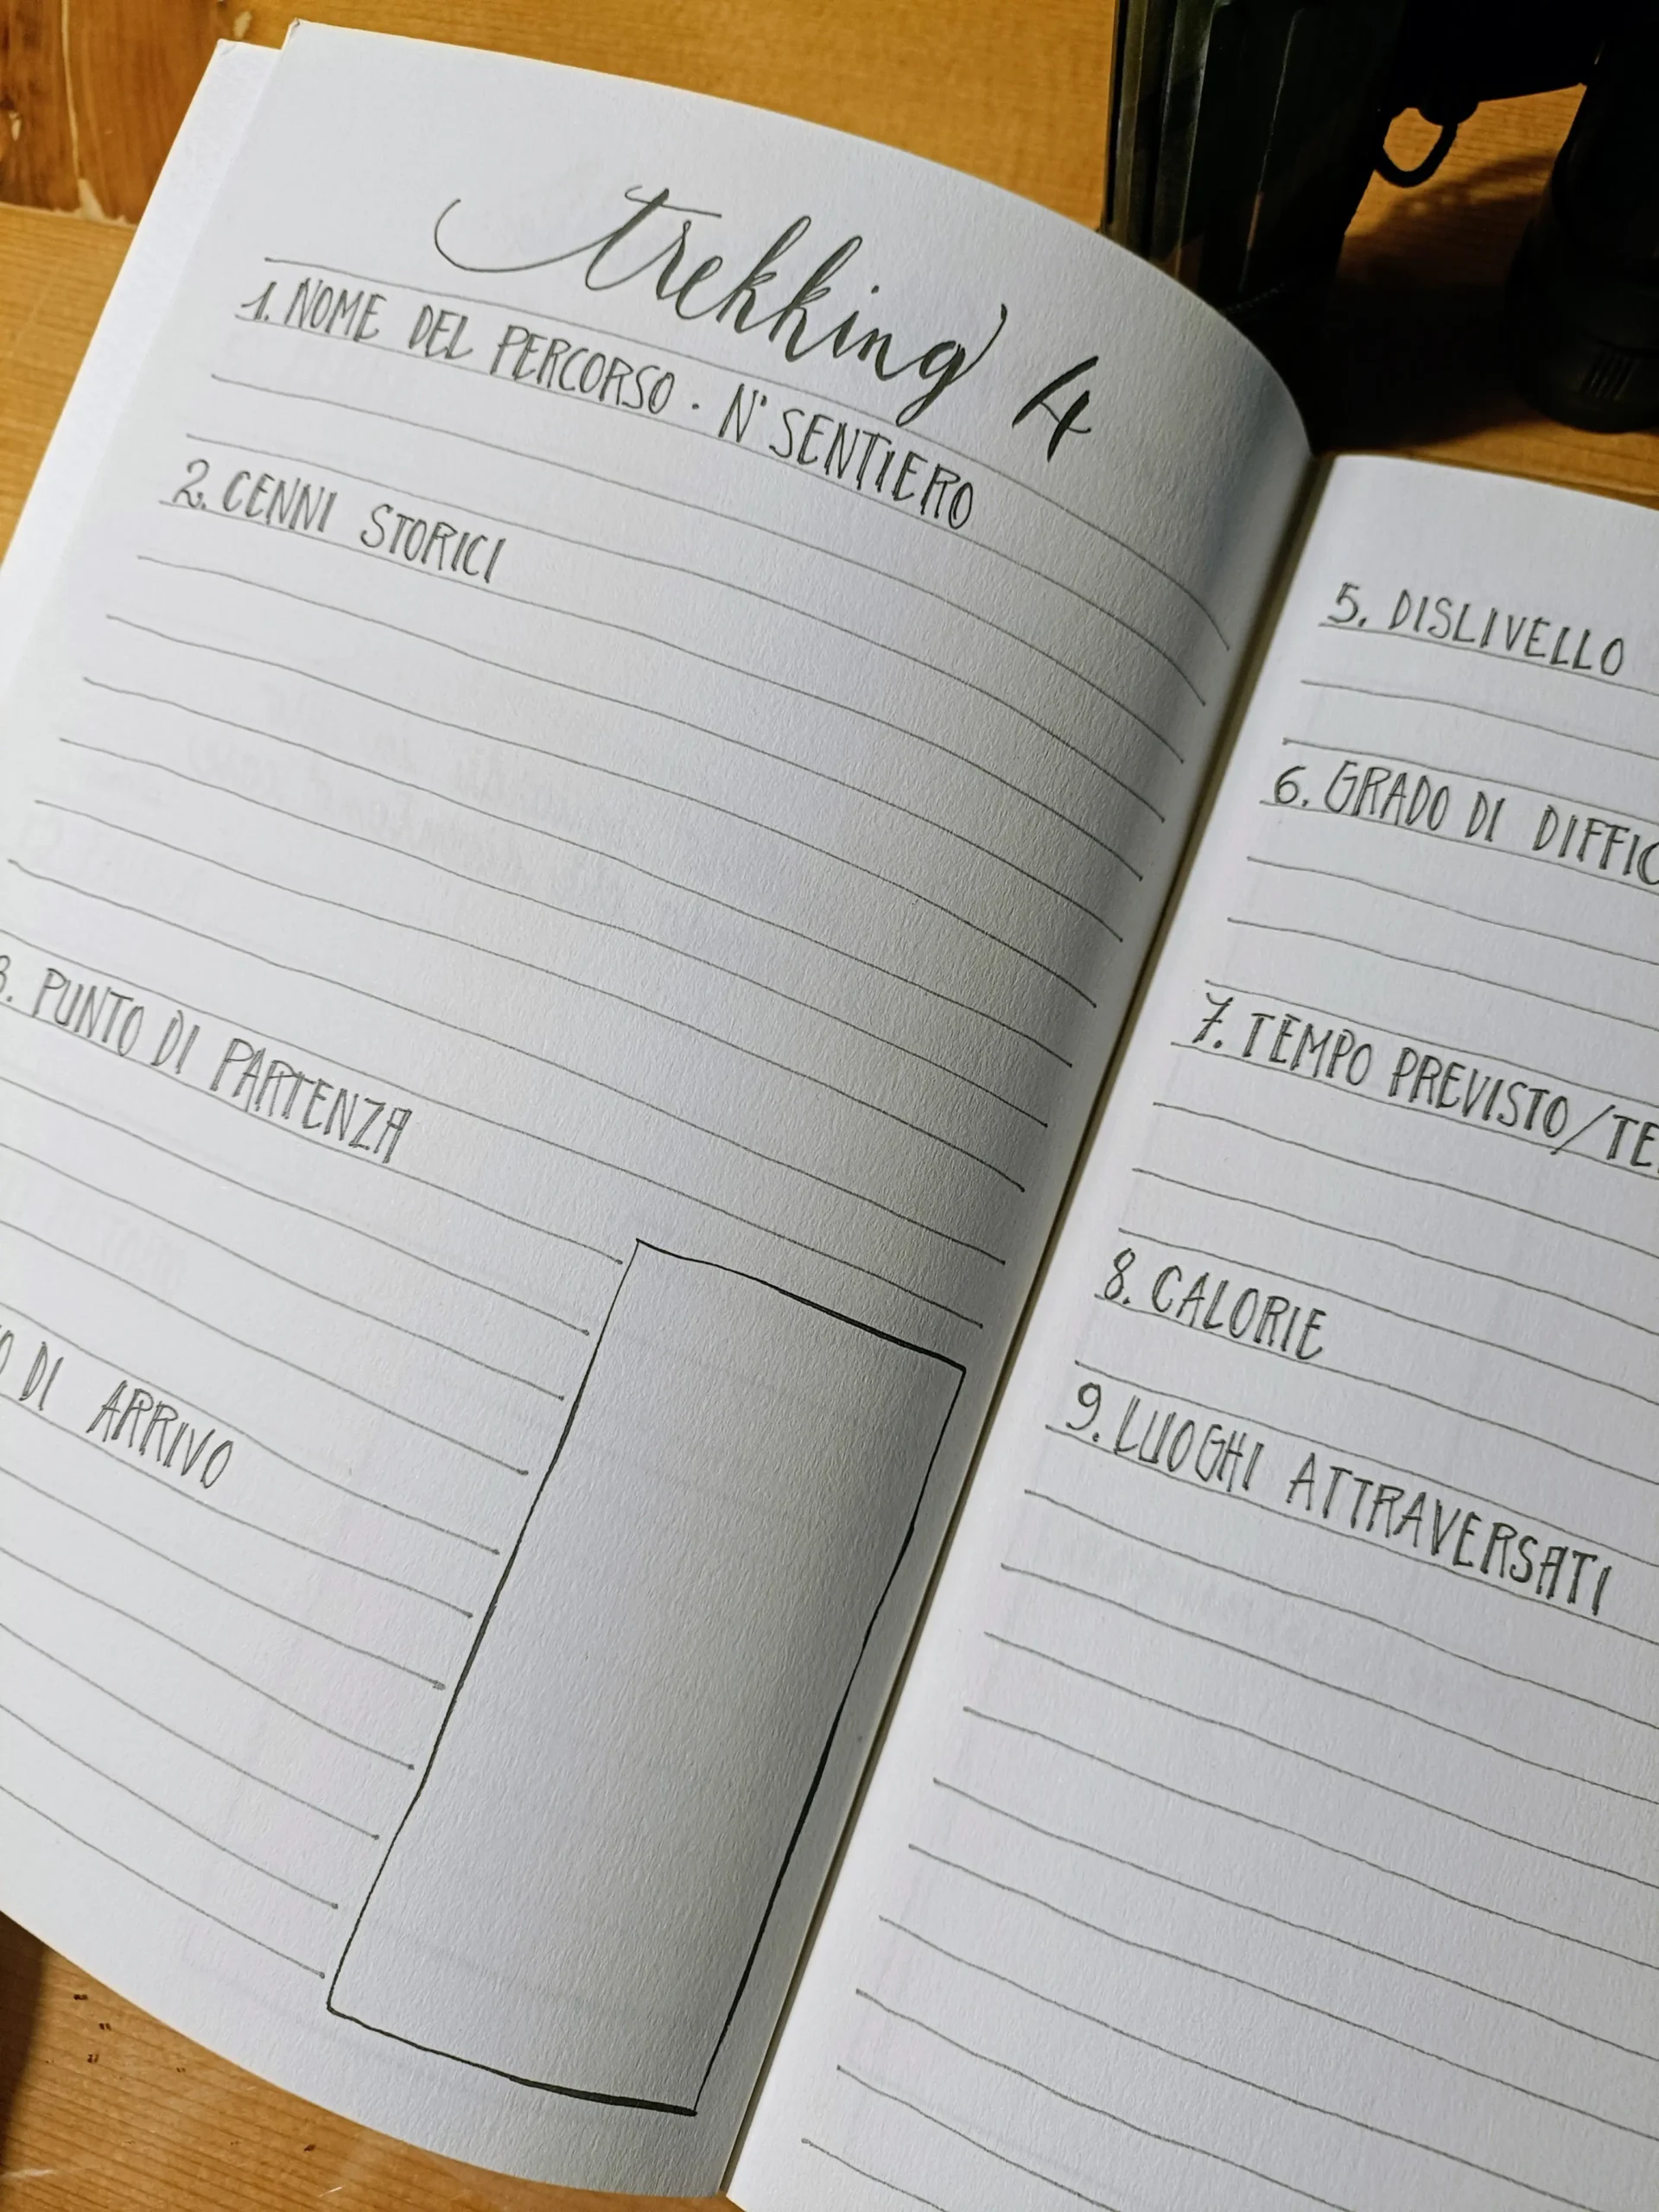 trekking 4
1. NOME DEL PERCORSO · N° SENTIERO
2. CENNI STORICI
3. PUNTO DI PARTENZA
DI ARRIVO
5. DISLIVELLO
6. GRADO DI
7. TEMPO PREVISTO/
8. CALORIE
9. LUOGHI ATTRAVERSATI